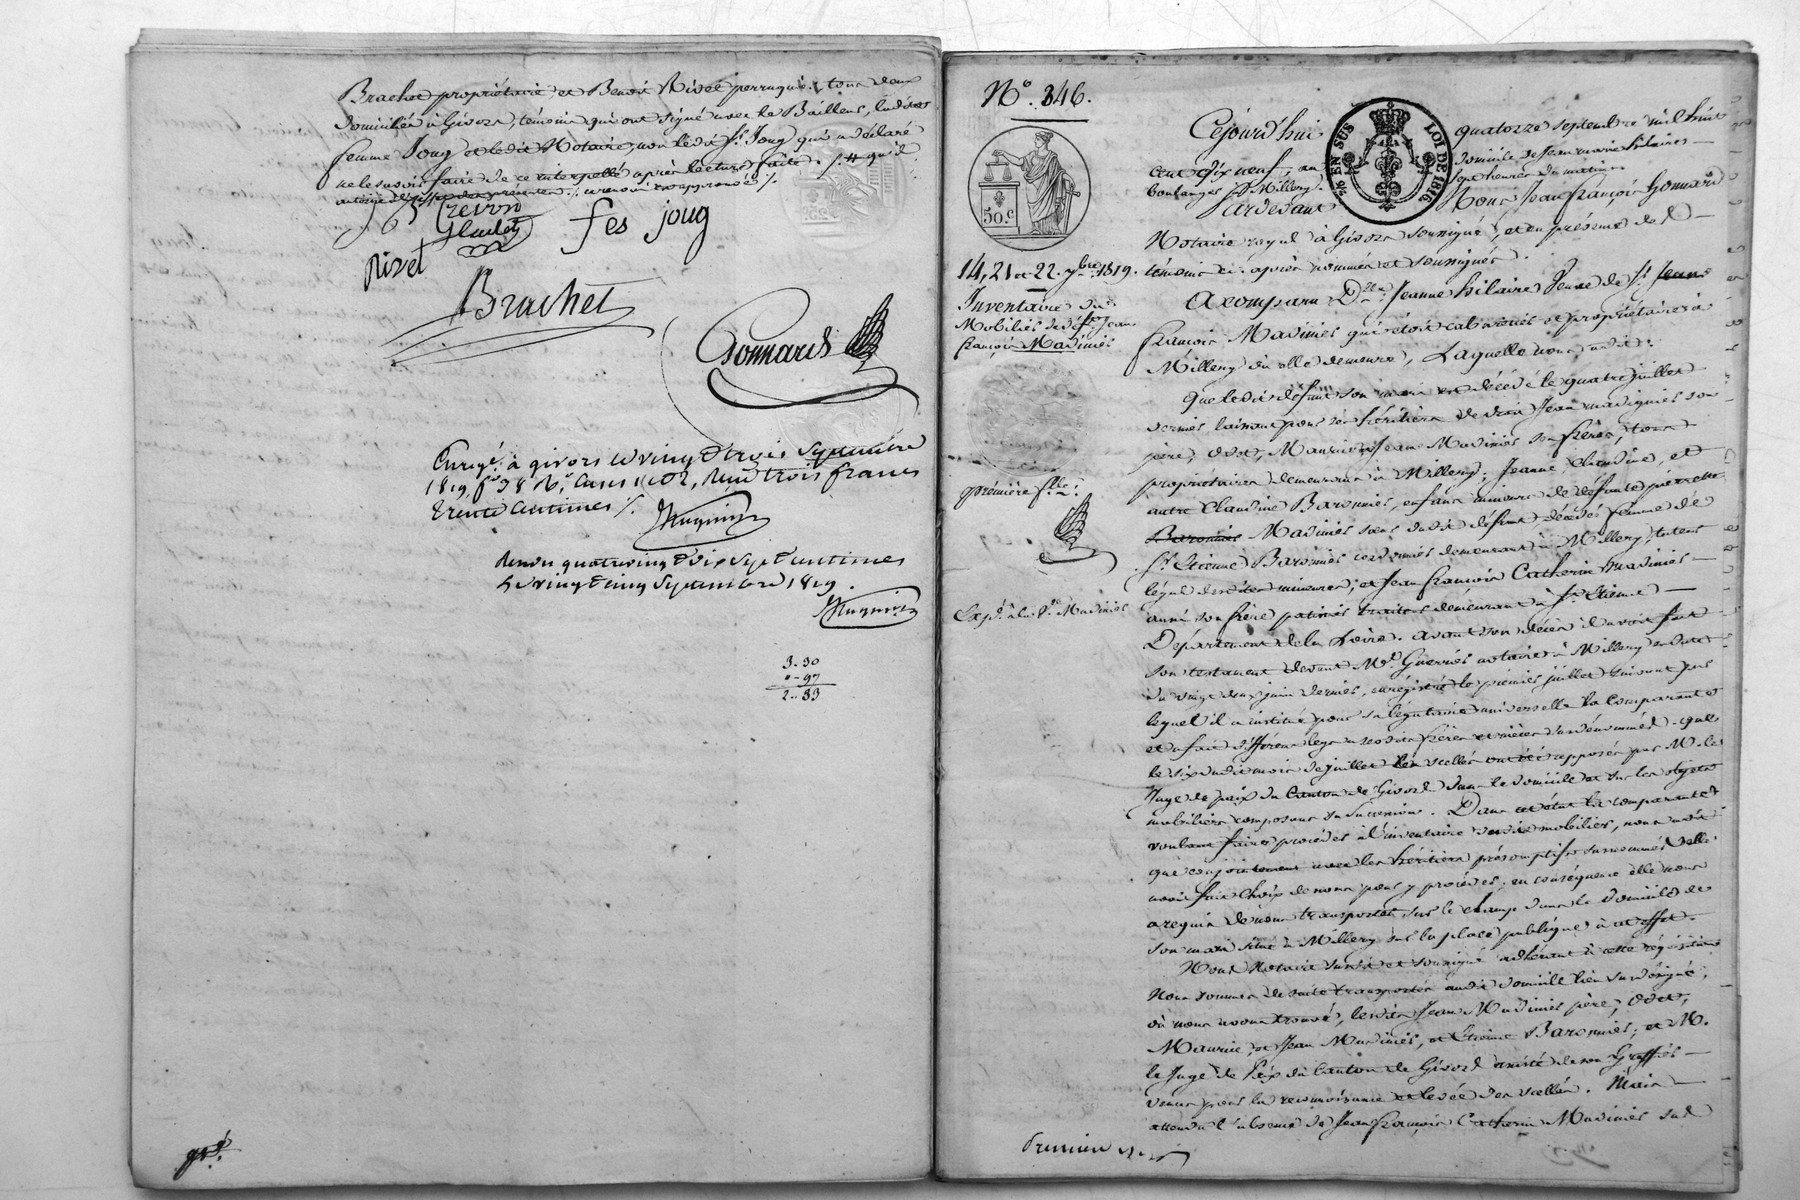 Brachet propriétaire, et Benoit Rivet perruquier, tous deux
domiciliés à Givors, témoins qui ont signé avec le Bailleur, ladite
femme Joug et ledit Notaire, non ledit Sr. Joug qui a déclaré
ne le savoir faire de ce interpellé après lecture faite. /. # qu'il
renvoi approuvé /.
Crevon
Rivet
fes joug
Brachet
Gonnard
Enregé. à givors le vingt trois Septembre
1819, fo 38 Vo. Cases 1 et 2, Reçu trois francs
trente Centimes /.
Rendu quatre vingt dix Sept centimes
le vingt cinq Septembre 1819.
3.30
" - 97
2.. 33
No. 346.
50.c
14, 21 et 22. 7bre 1819.
Inventaire du
Mobilier de déft. Jean
françois Madinier
première flle.
Expo. à la Ve. Madinier
EN SUS LOI DE 1816
Cejourd'hui quatorze septembre mil huit
cent dix neuf, au domicile de Jean marie hilaire
boulanger à Millery. sept heures du matin.
Pardevant Nous Jean françois Gonnard
Notaire royal à Givors soussigné, et en présence de
témoins ci-après nommés et soussignés.
A comparu De. Jeanne hilaire Veuve de Sr. Jean
françois Madinier qui étoit cabaretier et propriétaire à
Millery où elle demeure, Laquelle nous a dit:
Que ledit défunt son mari est décédé le quatre juillet
dernier, laissant pour ses héritiers de droit Jean Madinier son
père, Odet, Maurice et Jean Madinier ses frères, tous
propriétaires demeurants à Millery; Jeanne, Claudine, et
autre Claudine Baronnier, enfans mineurs de défunte pierrette
Madinier sœur dudit défunt décédée femme de
Sr. Etienne Baronnier cordonnier demeurant à Millery, tuteur
légal desdites mineures; et Jean françois Catherin Madinier
aussi son frère patissier traiteur demeurant à St. Etienne
Département de la Loire. avant son décès il avoit fait
son testament devant Me. Guerrier notaire à Millery en date
du vingt deux juin dernier, enrégistré le premier juillet suivant par
lequel il a institué pour sa légataire universelle la comparante
et a fait différens legs à sesdits frères et nièces susdénommés. que
le six dudit mois de juillet les scellés ont été apposés par M. le
Juge de paix du Canton de Givors dans le domicile et sur les objets
mobiliers composant sa succession. Dans cet état la comparante
voulant faire procéder à l'inventaire dudit mobilier, nous a dit
que conjointement avec les héritiers présomptifs susnommés elle
avoit fait choix de nous pour y procéder; en conséquence elle nous
a requis de nous transporter sur le champ dans le domicile de
son mari situé à Millery sur la place publique à cet effet.
Nous Notaire susdit et soussigné adhérant à cette réquisition
Nous sommes de suite transportés audit domicile lieu susdésigné,
où nous avons trouvé, lesdits Jean Madinier père, Odet,
Maurice, et Jean Madinier, et Etienne Baronnier; et M.
le Juge de Paix du Canton de Givors assisté de son Greffier
venus pour la reconnoissance et levée des scellés. Mais
attendu l'absence de Jean françois Catherin Madinier sur